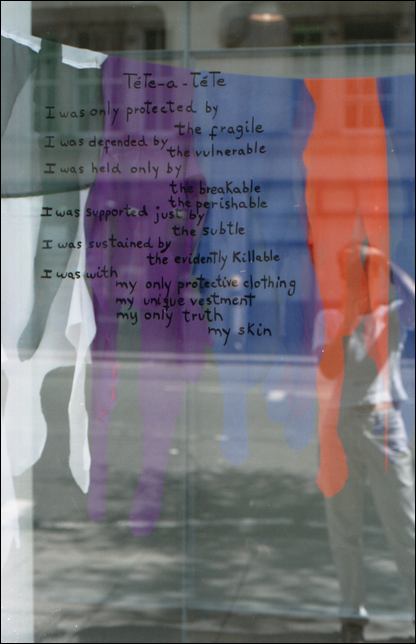 TéTe-a-TéTe
I was only protected by
the fragile
I was defended by
the vulnerable
I was held only by
the breakable
the perishable
I was supported just by
the subtle
I was sustained by
the evidently Killable
I was with
my only protective clothing
my unique vestment
my only truth
my skin